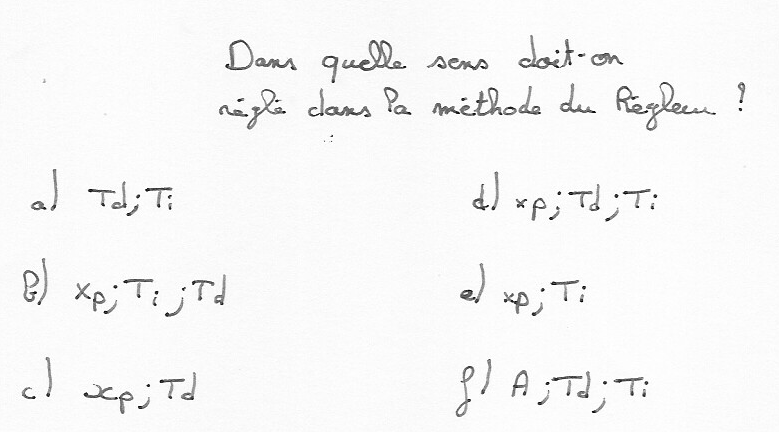 Dans quelle sens doit-on
réglé dans la méthode du Régleur ?
a) Td ; Ti
d) xp ; Td ; Ti
b) xp ; Ti ; Td
e) xp ; Ti
c) xp ; Td
f) A ; Td ; Ti